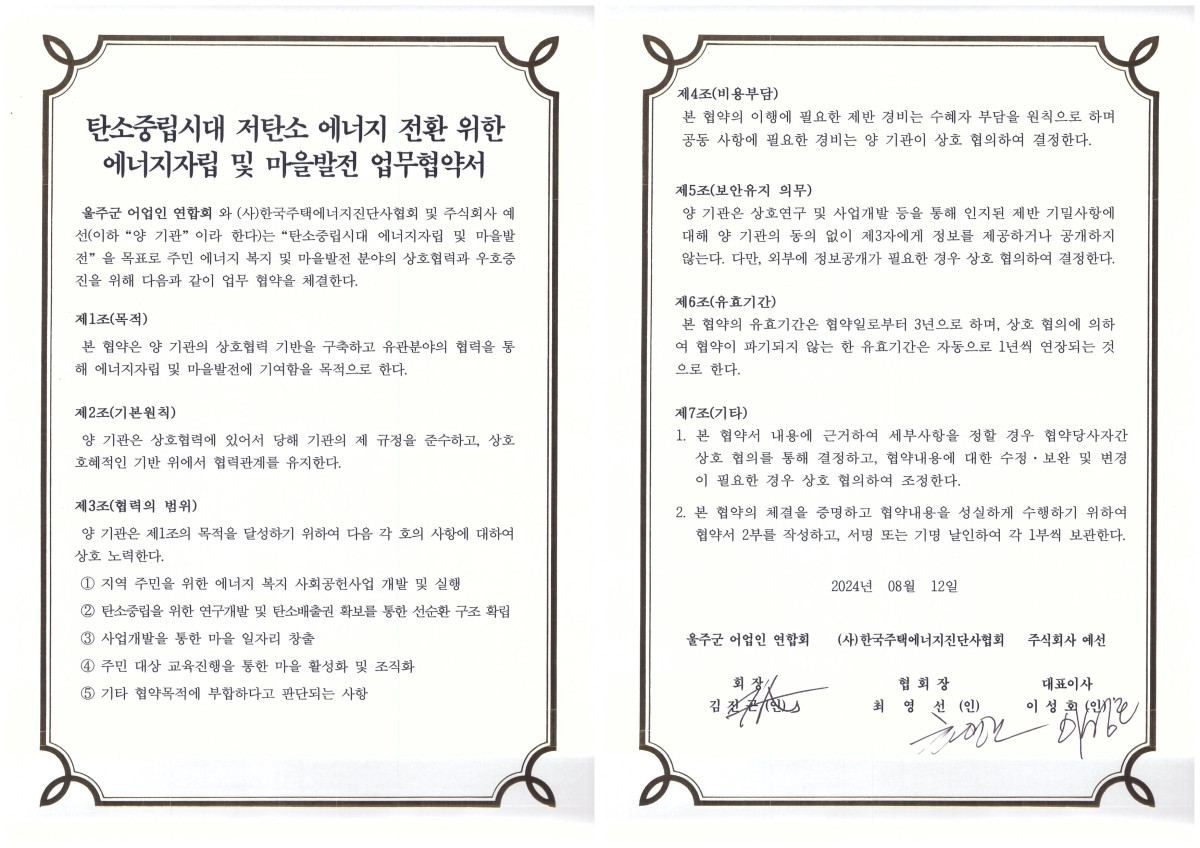 탄소중립시대 저탄소 에너지 전환 위한
에너지자립 및 마을발전 업무협약서
울주군 어업인 연합회 와 (사)한국주택에너지진단사협회 및 주식회사 예
선(이하 “양 기관” 이라 한다)는 “탄소중립시대 에너지자립 및 마을발
전” 을 목표로 주민 에너지 복지 및 마을발전 분야의 상호협력과 우호증
진을 위해 다음과 같이 업무 협약을 체결한다.
제1조(목적)
본 협약은 양 기관의 상호협력 기반을 구축하고 유관분야의 협력을 통
해 에너지자립 및 마을발전에 기여함을 목적으로 한다.
제2조(기본원칙)
양 기관은 상호협력에 있어서 당해 기관의 제 규정을 준수하고, 상호
호혜적인 기반 위에서 협력관계를 유지한다.
제3조(협력의 범위)
양 기관은 제1조의 목적을 달성하기 위하여 다음 각 호의 사항에 대하여
상호 노력한다.
① 지역 주민을 위한 에너지 복지 사회공헌사업 개발 및 실행
② 탄소중립을 위한 연구개발 및 탄소배출권 확보를 통한 선순환 구조 확립
③ 사업개발을 통한 마을 일자리 창출
④ 주민 대상 교육진행을 통한 마을 활성화 및 조직화
⑤ 기타 협약목적에 부합하다고 판단되는 사항
제4조(비용부담)
본 협약의 이행에 필요한 제반 경비는 수혜자 부담을 원칙으로 하며
공동 사항에 필요한 경비는 양 기관이 상호 협의하여 결정한다.
제5조(보안유지 의무)
양 기관은 상호연구 및 사업개발 등을 통해 인지된 제반 기밀사항에
대해 양 기관의 동의 없이 제3자에게 정보를 제공하거나 공개하지
않는다. 다만, 외부에 정보공개가 필요한 경우 상호 협의하여 결정한다.
제6조(유효기간)
본 협약의 유효기간은 협약일로부터 3년으로 하며, 상호 협의에 의하
여 협약이 파기되지 않는 한 유효기간은 자동으로 1년씩 연장되는 것
으로 한다.
제7조(기타)
1. 본 협약서 내용에 근거하여 세부사항을 정할 경우 협약당사자간
상호 협의를 통해 결정하고, 협약내용에 대한 수정·보완 및 변경
이 필요한 경우 상호 협의하여 조정한다.
2. 본 협약의 체결을 증명하고 협약내용을 성실하게 수행하기 위하여
협약서 2부를 작성하고, 서명 또는 기명 날인하여 각 1부씩 보관한다.
2024년 08월 12일
울주군 어업인 연합회 (사)한국주택에너지진단사협회 주식회사 예선
회 장 협 회 장 대표이사
김 (인) 최 영 선 (인) 이 성 호 (인)